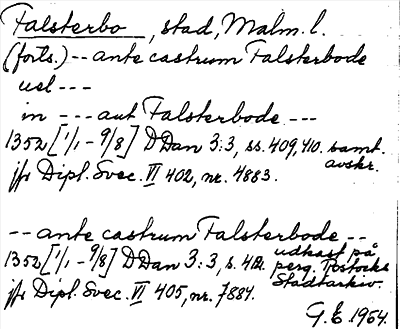 Falsterbo, stad, Malm. l.
(forts.) -- ante castrum Falsterbode
uel ---
in --- aut Falsterbode ---
1352 [1/1 - 9/8] DDan 3:3, ss. 409, 410. samt.
avskr.
jfr Dipl. Svec. VI 402, nr. 4883.
-- ante castrum Falsterbode --
1352 [1/1 - 9/8] DDan 3:3, s. 412. udkast på
perg. Rostocks
Stadtarkiv.
jfr Dipl. Svec. VI 405, nr. 7884.
G. E 1964.